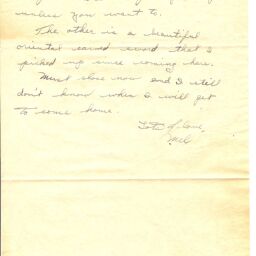 unless you want to.
The other is a beautiful
oriental carved sword that I
picked up since coming here.
Must close now and I still
don't know when I will get
to come home.
Lots of love,
Mel